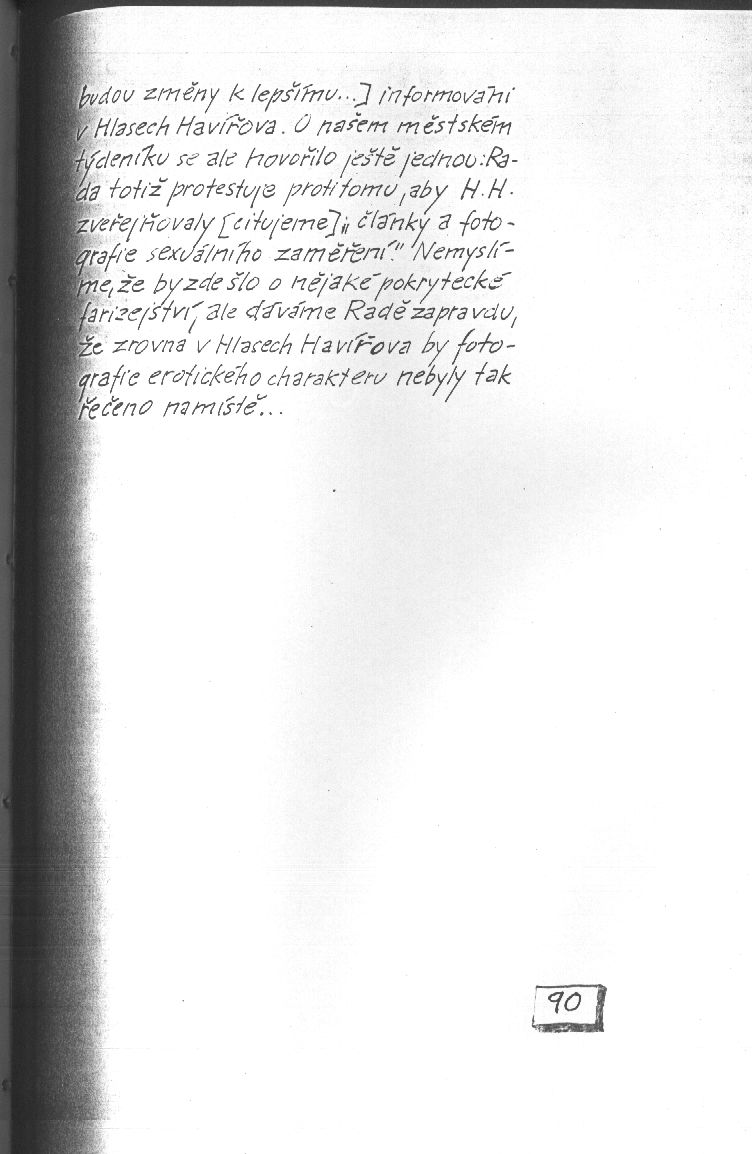 budou změny k lepšímu...] informováni
v Hlasech Havířova. O našem městském
týdeníku se ale hovořilo ještě jednou: Ra-
da totiž protestuje proti tomu, aby H.H.
zveřejňovaly [citujeme] „články a foto-
grafie sexuálního zaměření." Nemyslí-
me, že by zde šlo o nějaké pokrytecké
farizejství, ale dáváme Radě zapravdu,
že zrovna v Hlasech Havířova by foto-
grafie erotického charakteru nebyly tak
řečeno namístě...
90